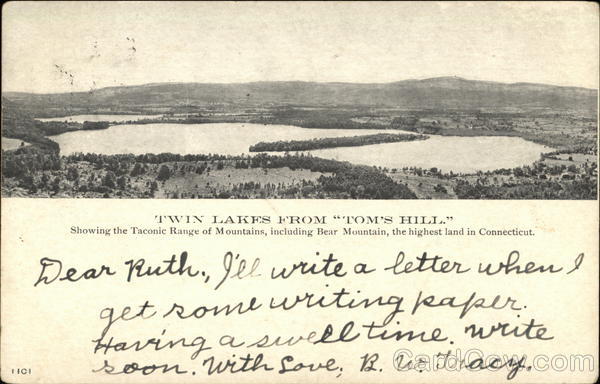 TWIN LAKES FROM "TOM'S HILL."
Showing the Taconic Range of Mountains, including Bear Mountain, the highest land in Connecticut.
Dear Ruth., I'll write a letter when I
get some writing paper.
Having a swell time. Write
soon. With Love, B. W. Tracy.
1101
CardCow.com